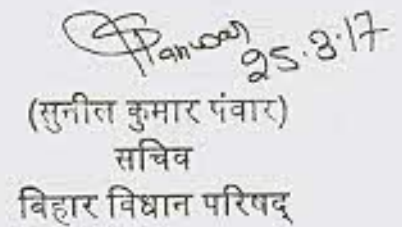 Panwar
25.3.17
(सुनील कुमार पंवार)
सचिव
बिहार विधान परिषद्